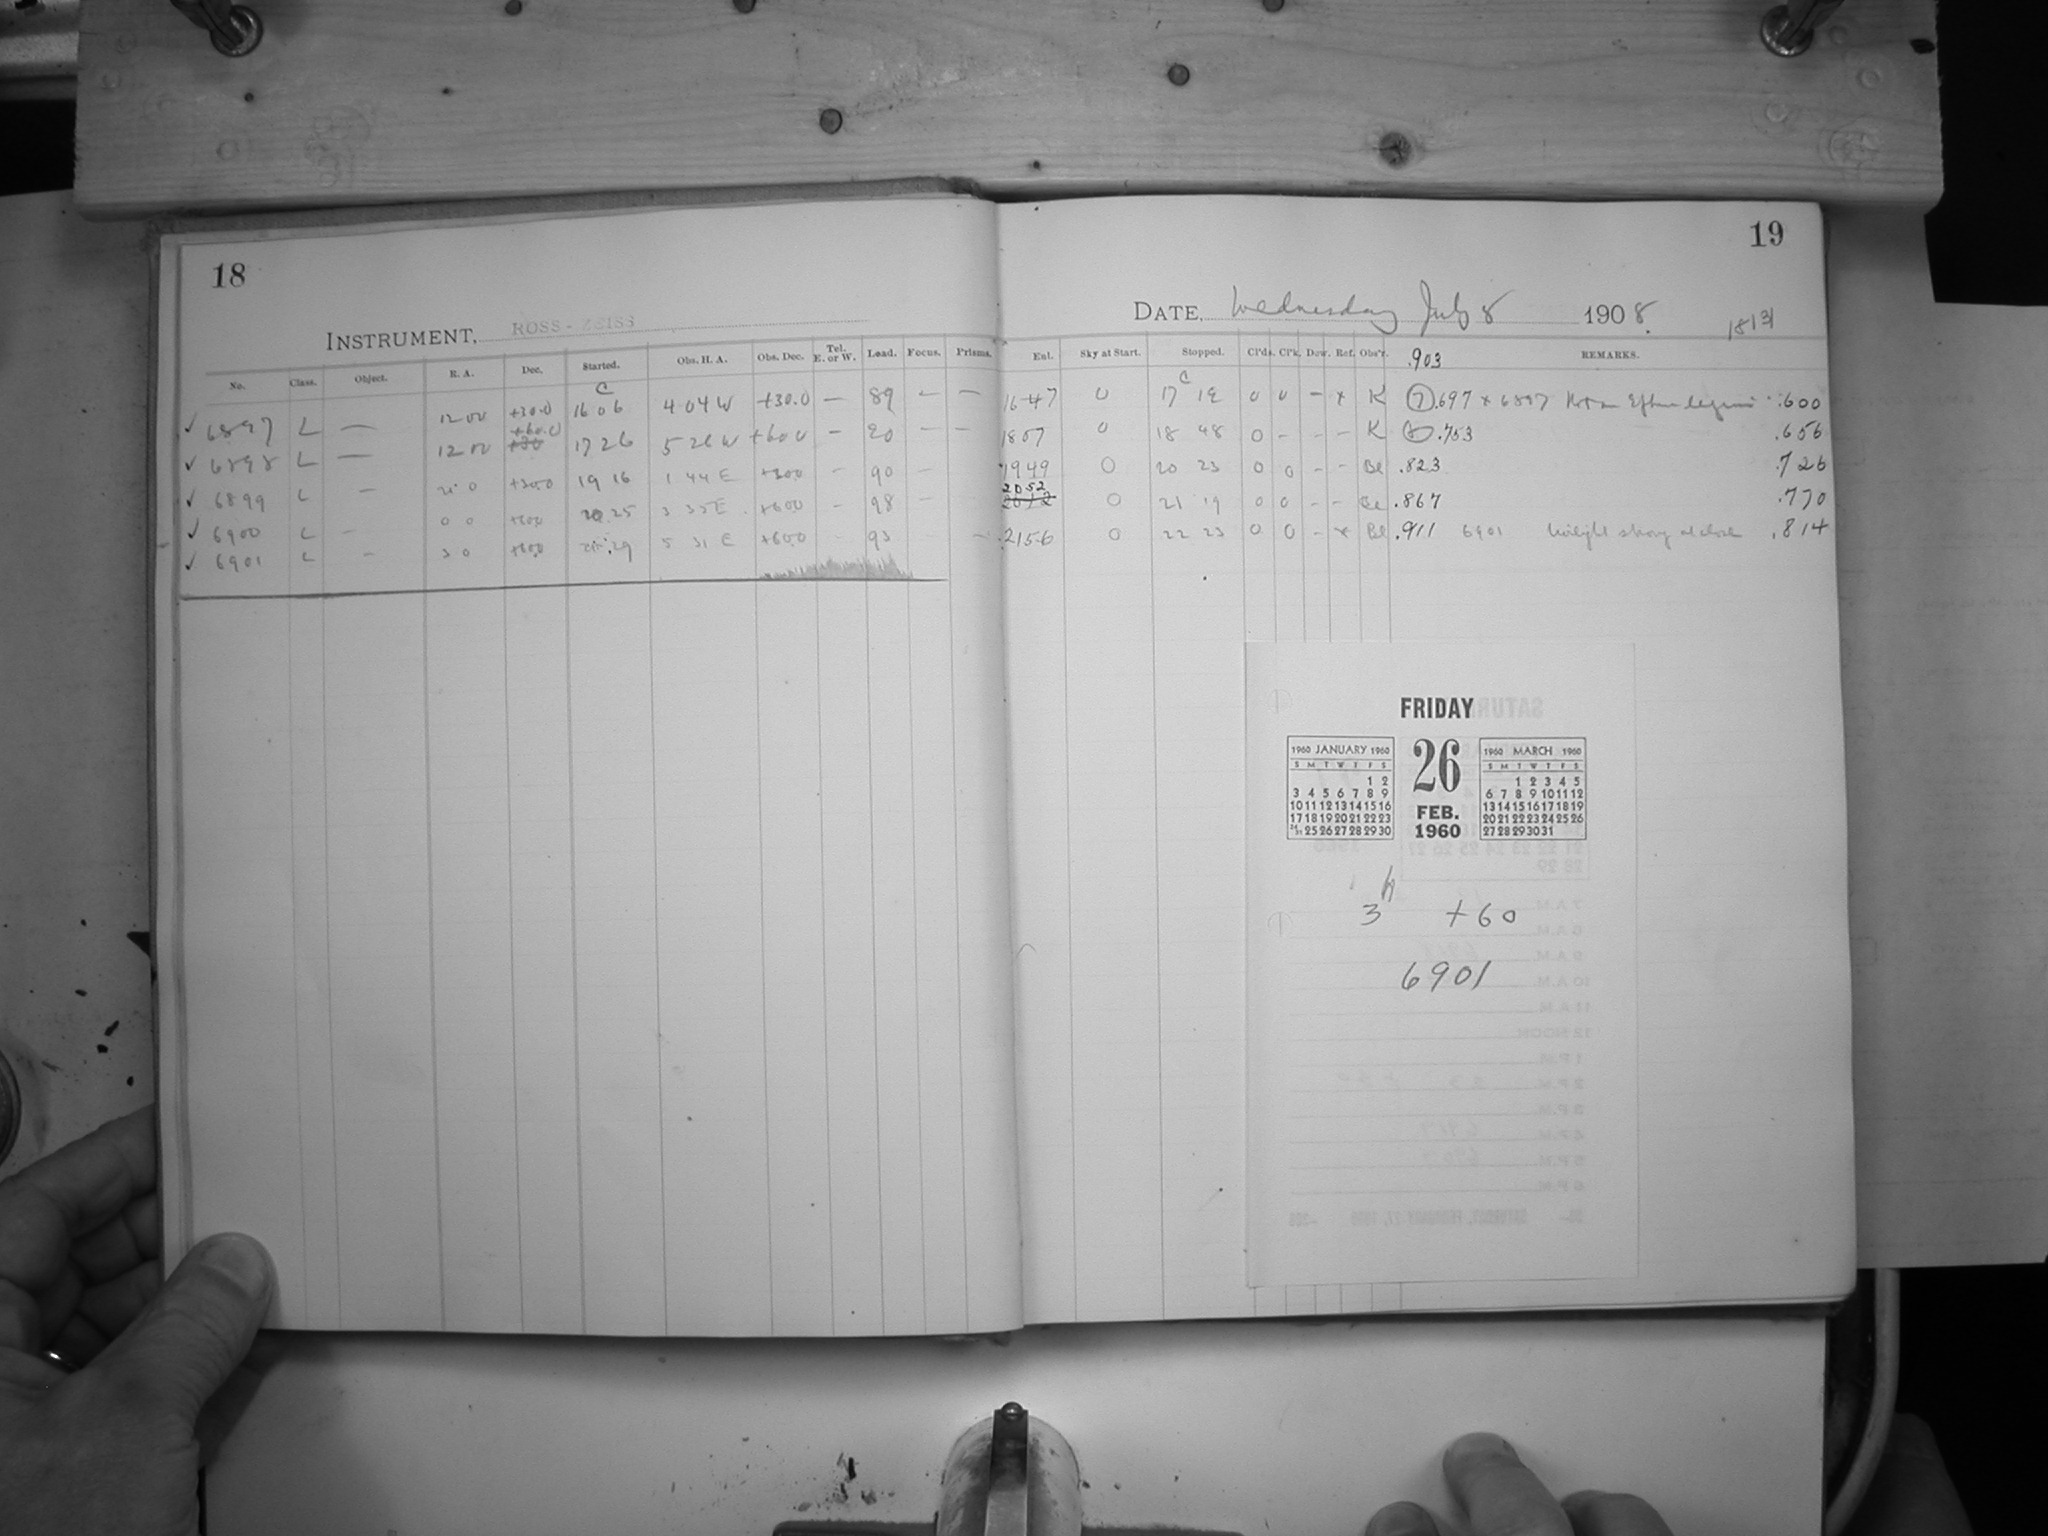 18
INSTRUMENT, ROSS-ZEISS
No. Class. Object. R. A. Dec. Started. Obs. H. A. Obs. Dec. Tel. E. or W. Load. Focus. Prisms.
✓ 6897 L — 12 00 +30.0 C 16 06 4 04 W +30.0 — 89 — —
✓ 6898 L — 12 00 +60.0 17 26 5 26 W +60 0 — 90 — —
✓ 6899 L — +30.0 19 16 1 44 E +30.0 - 90 -
✓ 6900 L — 0 0 +60.0 20 25 3 35 E +60.0 - 98 -
✓ 6901 L - 3 0 +60.0 21 29 5 31 E +60.0 93 —
19
DATE, Wednesday July 8 1908.
Enl. Sky at Start. Stopped. Cl'ds. Cl'k. Dew. Ref. Obs'r. .903 REMARKS.
1647 0 C 17 0 0 - x K .697 x 6897 .600
1807 0 18 48 0 - - - K .753 .656
1949 0 20 23 0 0 - - Be .823 .726
2052 0 21 19 0 0 - - Be .867 .770
2156 0 22 23 0 0 - x Be .911 6901 twilight strong at close .814
FRIDAY
1960 JANUARY 1960
S M T W T F S
1 2
3 4 5 6 7 8 9
10 11 12 13 14 15 16
17 18 19 20 21 22 23
24/31 25 26 27 28 29 30
26
FEB.
1960
1960 MARCH 1960
S M T W T F S
1 2 3 4 5
6 7 8 9 10 11 12
13 14 15 16 17 18 19
20 21 22 23 24 25 26
27 28 29 30 31
3h +60
6901